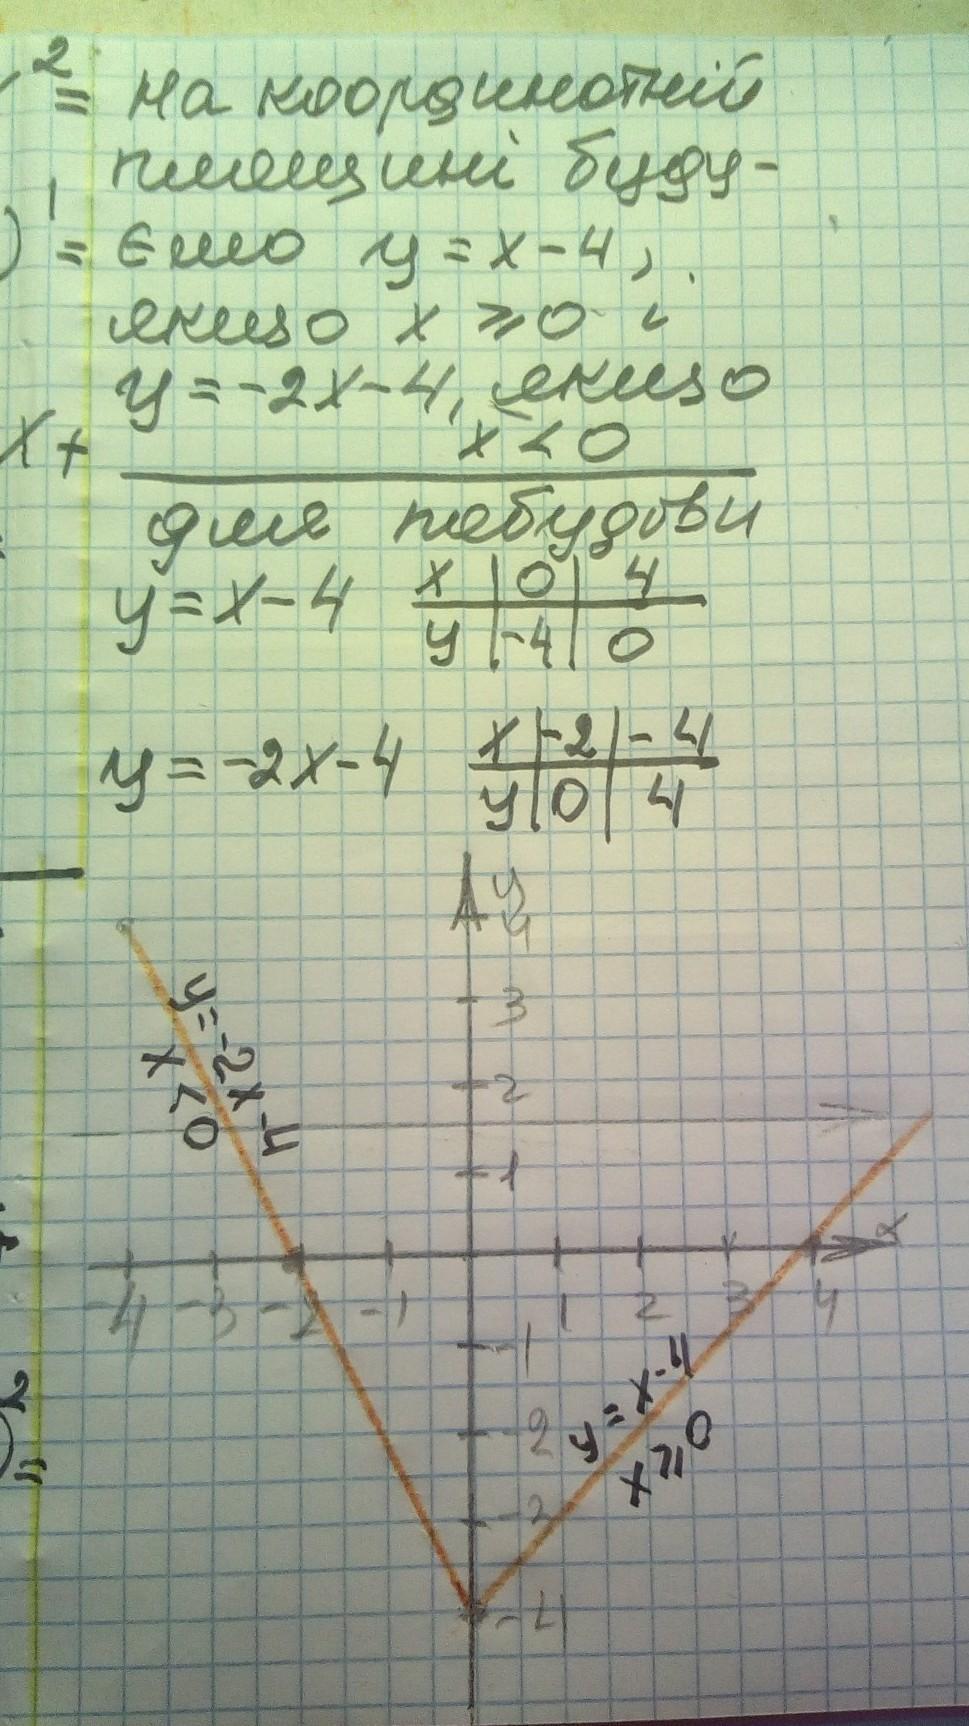 2
= на координатній
площині буду-
) = ємо y = x - 4,
якщо x ⩾ 0 і
y = -2x - 4, якщо
x +
x < 0
для побудови
y = x - 4
x | 0 | 4
y | -4 | 0
y = -2x - 4
x | -2 | -4
y | 0 | 4
y
4
3
2
1
x
-4 -3 -2 -1 1 2 3 4
-1
-2
-2
-4
y = -2x - 4
x < 0
y = x - 4
x ⩾ 0
2
=